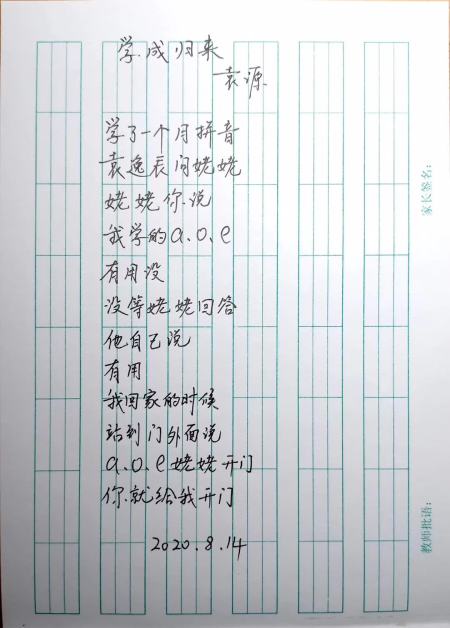 学成归来
袁源
学了一个月拼音
袁逸辰问姥姥
姥姥你说
我学的a.o.e
有用没
没等姥姥回答
他自己说
有用
我回家的时候
站到门外面说
a.o.e姥姥开门
你就给我开门
2020.8.14
家长签名：
教师批语：